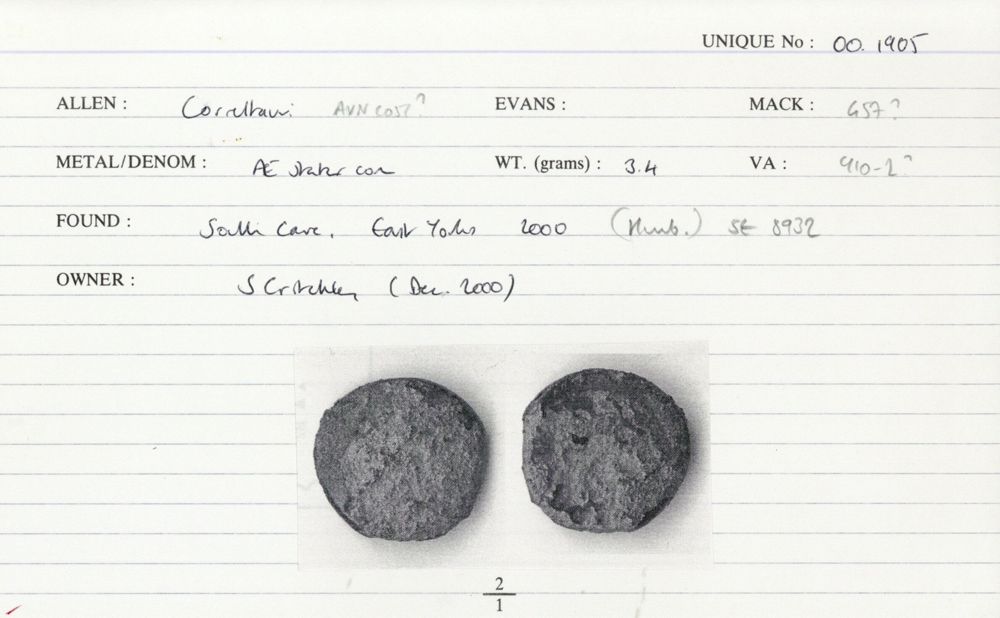 UNIQUE No : 00.1905
ALLEN : Corieltauvi AVN COST? EVANS : MACK : 457?
METAL/DENOM : Æ stater core WT. (grams) : 3.4 VA : 910-2?
FOUND : South Cave, East Yorks 2000 (Humb.) SE 8932
OWNER : S Critchley (Dec. 2000)
2
1